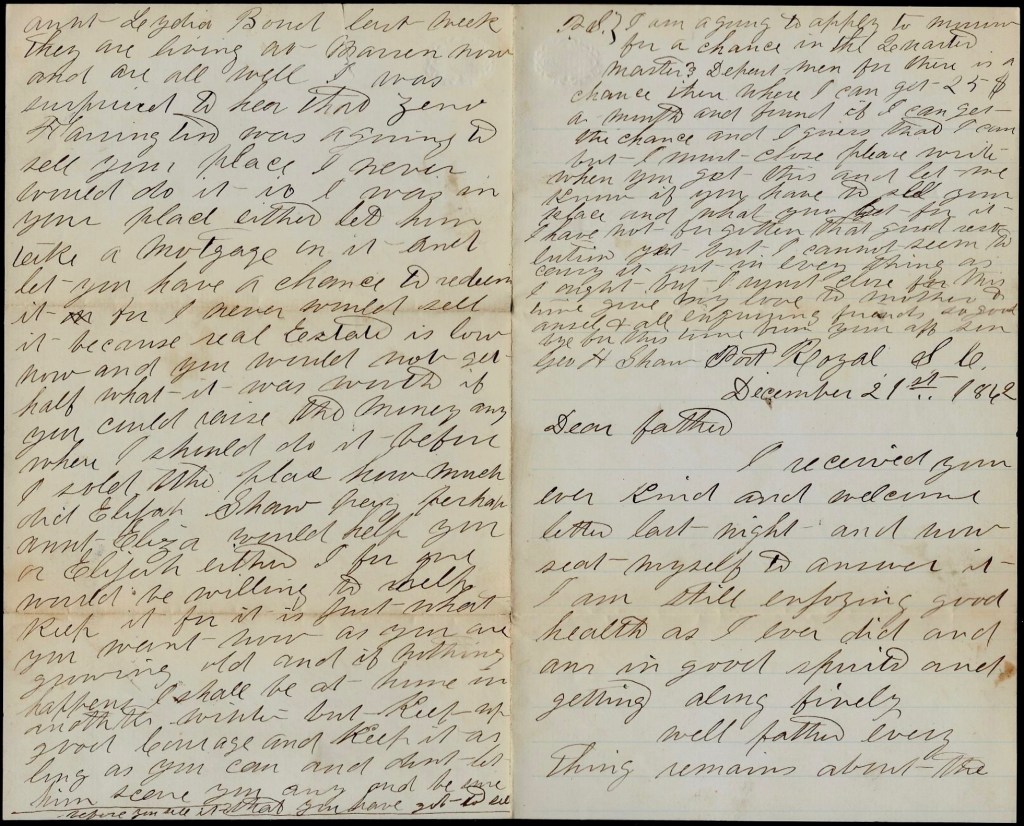 aunt Lydia Bond last week
they are living at Barren now
and are all well I was
surprised to hear that Zeno
Harrington was agoing to
sell your place I never
would do it if I was in
your place either let him
take a Motgage on it and
let you have a chance to redeem
it for I never would sell
it because real Estate is low
now and you would not get
half what it was worth if
you could raise the money any
where I should do it before
I sold the place how much
did Elijah Shaw perhaps
aunt Eliza would help you
or Elijah either I for one
would be willing to help
keep it for it is just what
you want now as you are
growing old and if nothing
happens I shall be at home in
another winter but keep up
good Courage and keep it as
long as you can and dont let
him scare you any and be sure
before you sell it that you have got to sell
P.S. } I am agoing to apply to
for a chance in the Quarter
masters Depart men for there is a
chance there where I can get 25 $
a month and found if I can get
the chance and I guess that I can
but I must close please write
when you get this and let me
know if you have to sell your
place and what you get for it
I have not forgotten that good reso
lution yet but I cannot seem to
carry it out in every thing as
I ought but I must close for this
time give my love to mother &
ansel & all enquiring friends so good
bye for this time from your aff son
Geo H Shaw Port Royal S. C.
December 21st. 1862
Dear father
I received your
ever kind and welcome
letter last night and now
seat myself to answer it
I am still enjoying good
health as I ever did and
am in good spirits and
getting along finely
well father every
thing remains about the